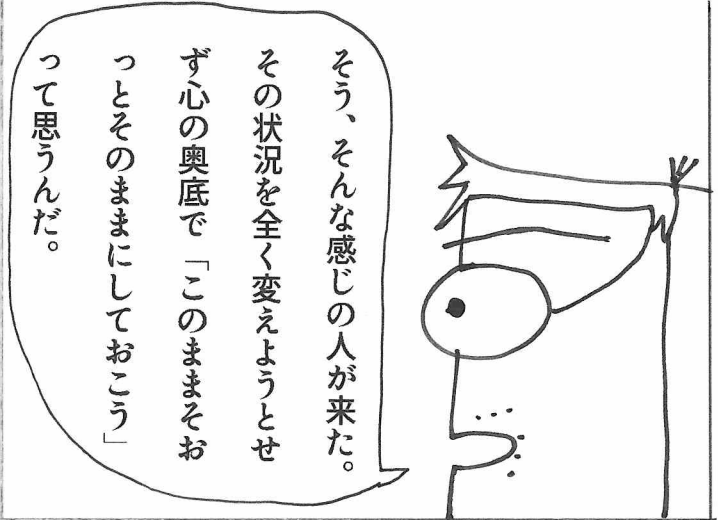 そう、そんな感じの人が来た。
その状況を全く変えようとせ
ず心の奥底で「このままそお
っとそのままにしておこう」
って思うんだ。